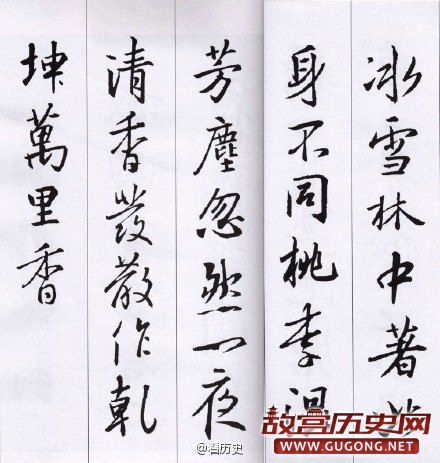 冰雪林中著此
身不同桃李混
芳塵忽然一夜
清香發散作乾
坤萬里香
故宫历史网
WWW.GUGONG.NET
@看历史